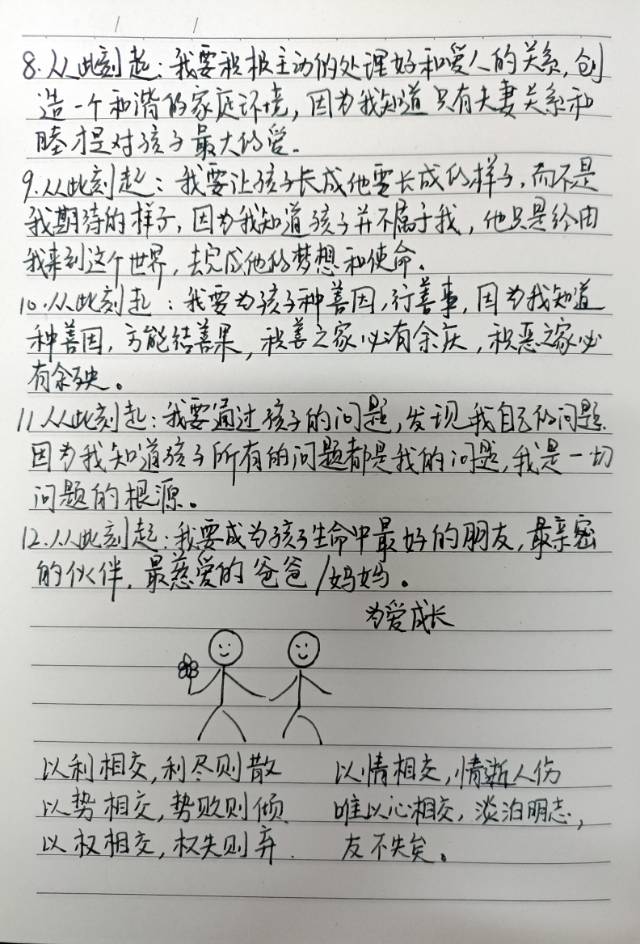 8.从此刻起：我要积极主动的处理好和爱人的关系,创
造一个和谐的家庭环境，因为我知道只有夫妻关系和
睦才是对孩子最大的爱。
9.从此刻起：我要让孩子长成他要长成的样子，而不是
我期待的样子，因为我知道孩子并不属于我，他只是经由
我来到这个世界，去完成他的梦想和使命。
10.从此刻起：我要为孩子种善因，行善事，因为我知道
种善因，方能结善果，积善之家必有余庆，积恶之家必
有余殃。
11.从此刻起：我要通过孩子的问题，发现我自己的问题.
因为我知道孩子所有的问题都是我的问题，我是一切
问题的根源。
12.从此刻起：我要成为孩子生命中最好的朋友，最亲密
的伙伴，最慈爱的爸爸/妈妈。
为爱成长
以利相交，利尽则散 以情相交，情断人伤
以势相交，势败则倾 唯以心相交，淡泊明志，
以权相交，权失则弃. 友不失矣。